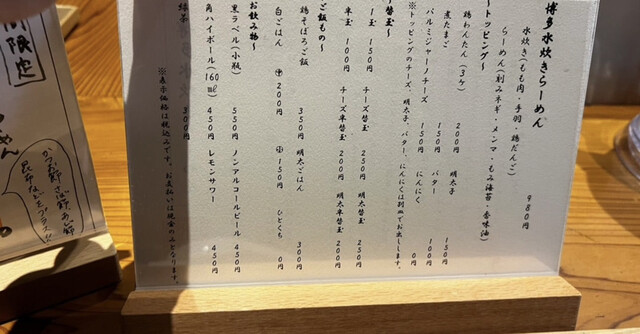 博多水炊きらーめん
水炊き(もも肉・手羽・鶏だんご)
らーめん(刻みネギ・メンマ・もみ海苔・香味油) 980円
〜トッピング〜
鶏わんたん(3ケ) 200円 明太子 150円
煮たまご 150円 バター 100円
パルミジャーノチーズ 150円 にんにく 0円
※トッピングのチーズ、明太子、バター、にんにくは別皿でお出しします。
替玉〜
1玉 150円 チーズ替玉 250円 明太替玉 250円
半玉 100円 チーズ半替玉 200円 明太半替玉 200円
ご飯もの〜
鶏そぼろご飯 350円 明太ごはん 300円
白ごはん 中 200円 小 150円 ひとくち 0円
お飲み物〜
黒ラベル(小瓶) 550円 ノンアルコールビール 450円
角ハイボール(160㎖) 450円 レモンサワー 450円
緑茶 300円
※表示価格は税込みです。お支払いは現金のみとなります。
間限定
らーめん
かつお節・さば節・あじ節
昆布などをプラス